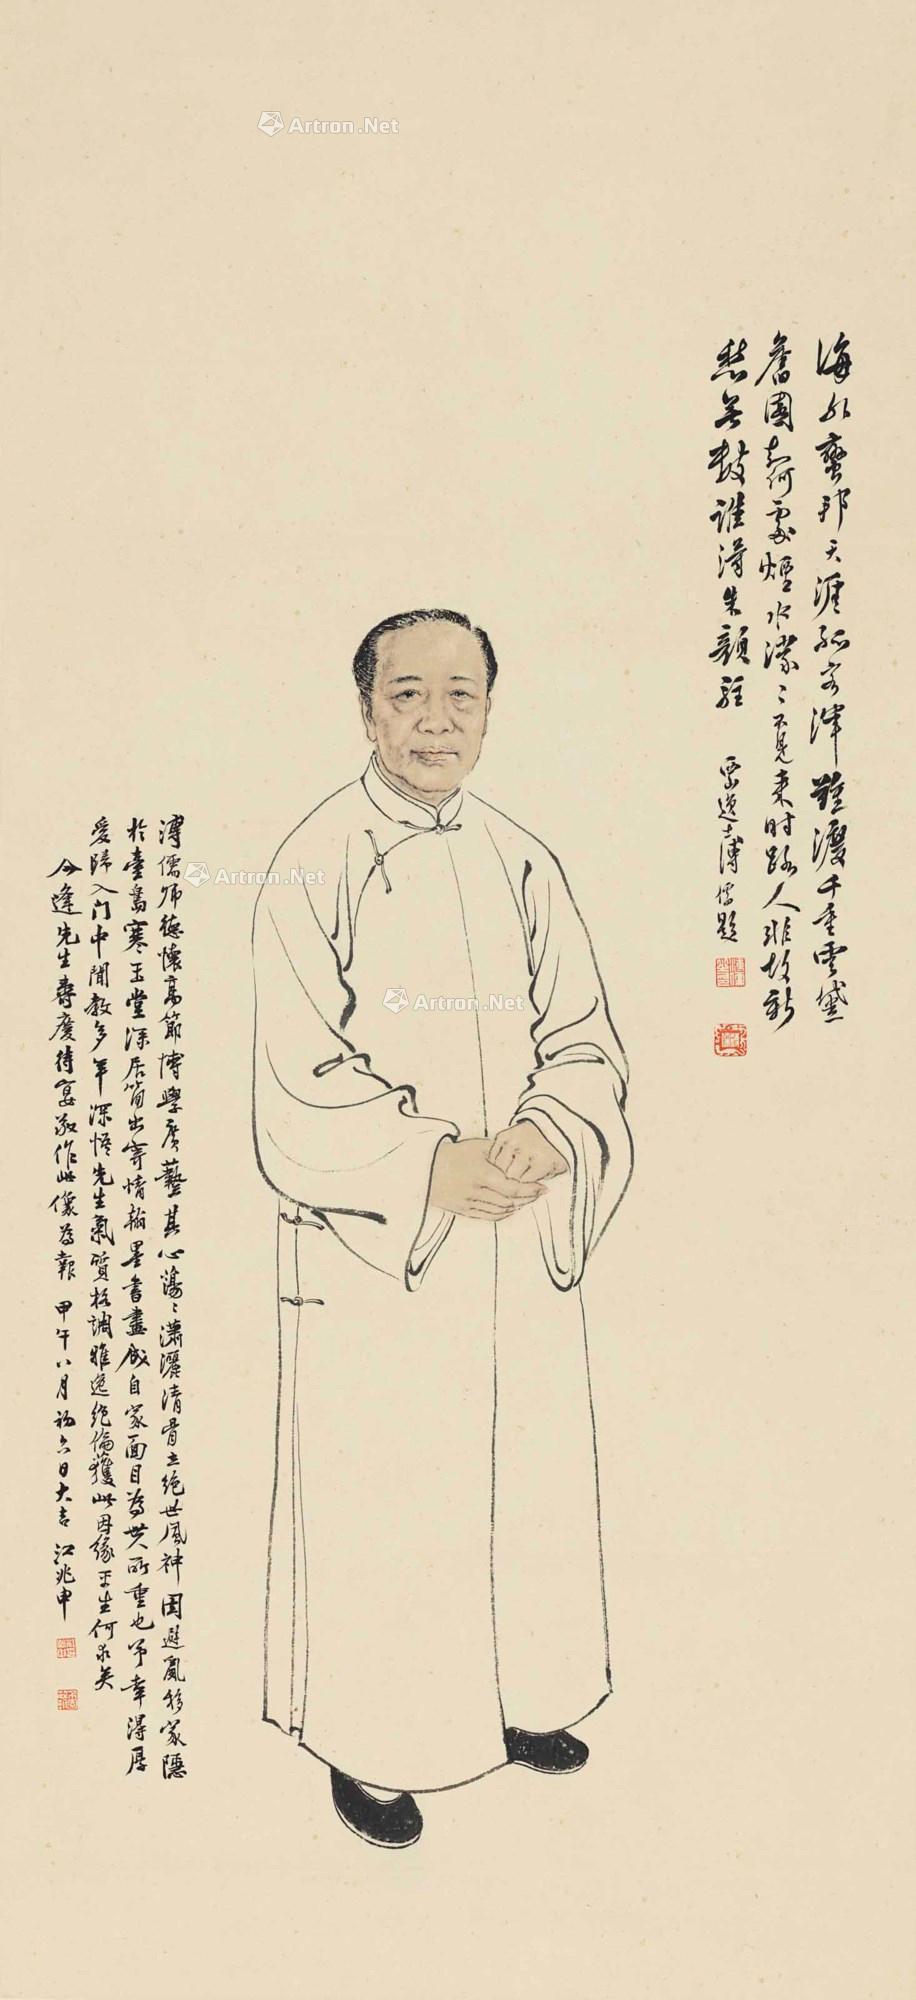 海外蛮邦天涯孤客津難渡千重雲黛
舊園何處煙水濛〻不見来时路人非故新
愁無數誰得朱顏駐
西山逸士溥儒題
溥儒师德懷高節博學廣藝其心蕩〻瀟灑清骨立絕世風神因避亂移家隱
於臺島寒玉堂深居簡出寄情翰墨書畫成自家面目為世人所重也予幸得厚
愛歸入门中聞教多年深悟先生氣質格調雅逸绝倫獲此因緣平生何求矣
今逢先生壽慶待宴敬作此像為報 甲午八月初六日大吉 江兆申
Artron.Net
Artron.Net
Artron.Net